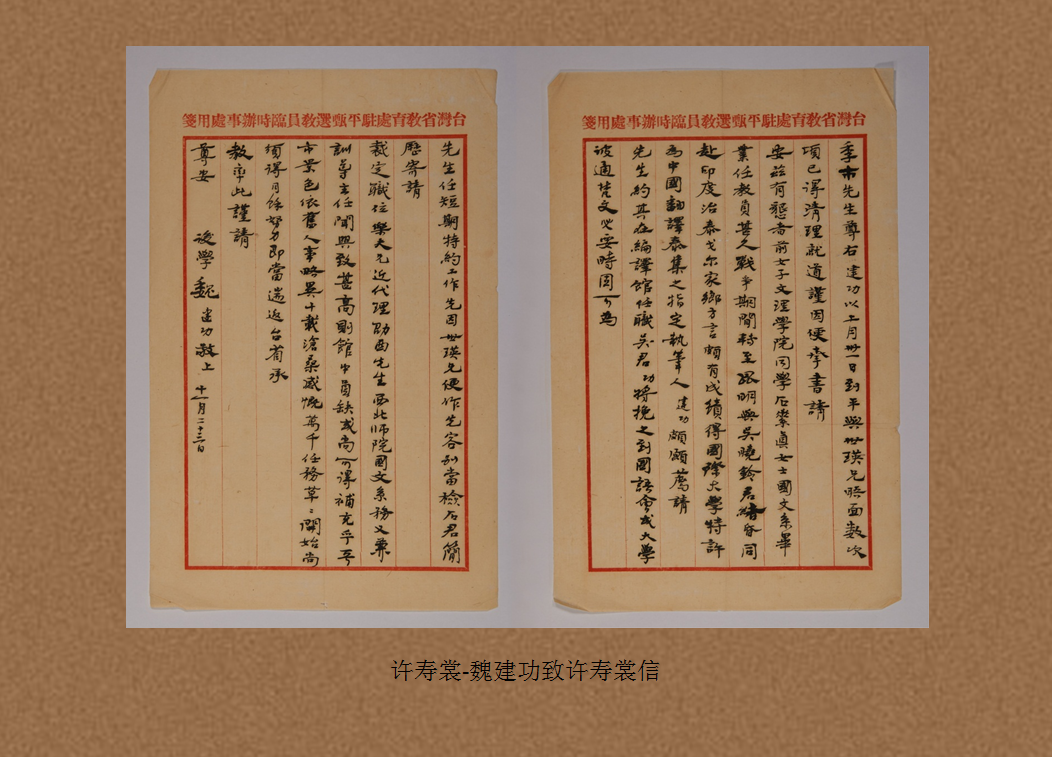 台灣省教育處駐平甄選教員臨時辦事處用箋
季巿先生尊右建功以上月卅一日到平與世瑛兄晤面數次
項已得清理就道謹因便奉書請
安茲有懇者前女子文理學院同學石素真女士國文系畢
業任教員甚久戰爭期間轉至昆明與吳曉鈴君結婚同
赴印度治泰戈尔家鄉方言頗有成績得國際大學特許
為中國翻譯泰集之指定執筆人建功頗願薦請
先生約其在編譯館任職吳君功將挽之到國語會或大學
彼通梵文必要時固可為
台灣省教育處駐平甄選教員臨時辦事處用箋
先生任短期特約工作先因世瑛兄便作先容別當檢石君簡
歷寄請
裁定職位樂夫兄近代理劭西先生西北師院國文系務又兼
訓導主任聞興致甚高則館中員缺或尚可得補充乎平
市景色依舊人事略異十載滄桑感慨萬千任務草々開始尚
須得月餘努力即當遄返台省承
教率此謹請
尊安
後學魏建功敬上
十一月二十三日
许寿裳-魏建功致许寿裳信